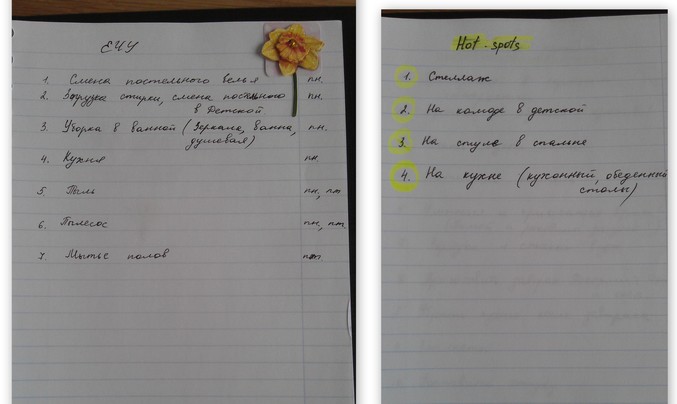 ЕЧУ
1. Смена постельного белья пн.
2. Загрузка стирки, смена постельного пн.
в детской
3. Уборка в ванной (Зеркала, ванна, пн.
душевая)
4. Кухня пн.
5. Пыль пн, пт
6. Пылесос пн, пт
7. Мытье полов пт.
Hot-spots
1. Стеллаж
2. На комоде в детской
3. На стуле в спальне
4. На кухне (кухонный, обеденный
столы)